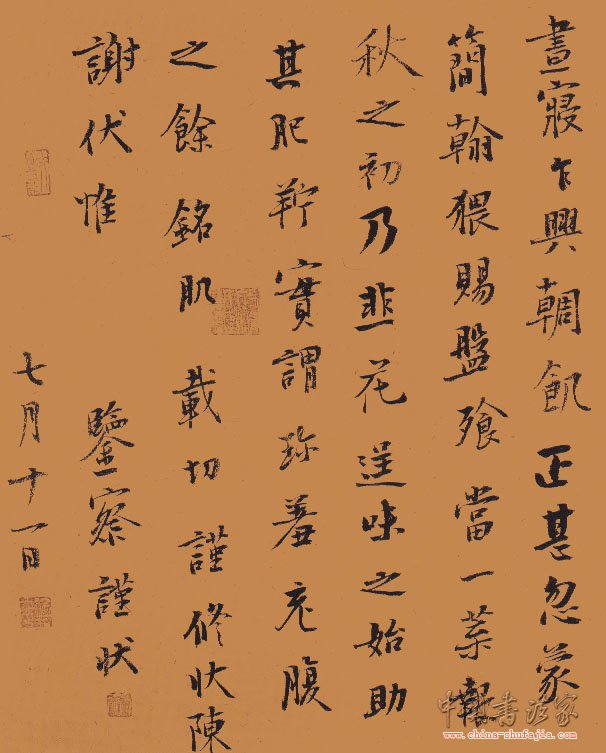 晝寢乍興輖飢正甚忽蒙
簡翰猥賜盤飧當一葉報
秋之初乃韭花逞味之始助
其肥羜實謂珍羞充腹
之餘銘肌載切謹修狀陳
謝伏惟 鑒察謹狀
七月十一日
中国书法家
www.china-shufajia.com